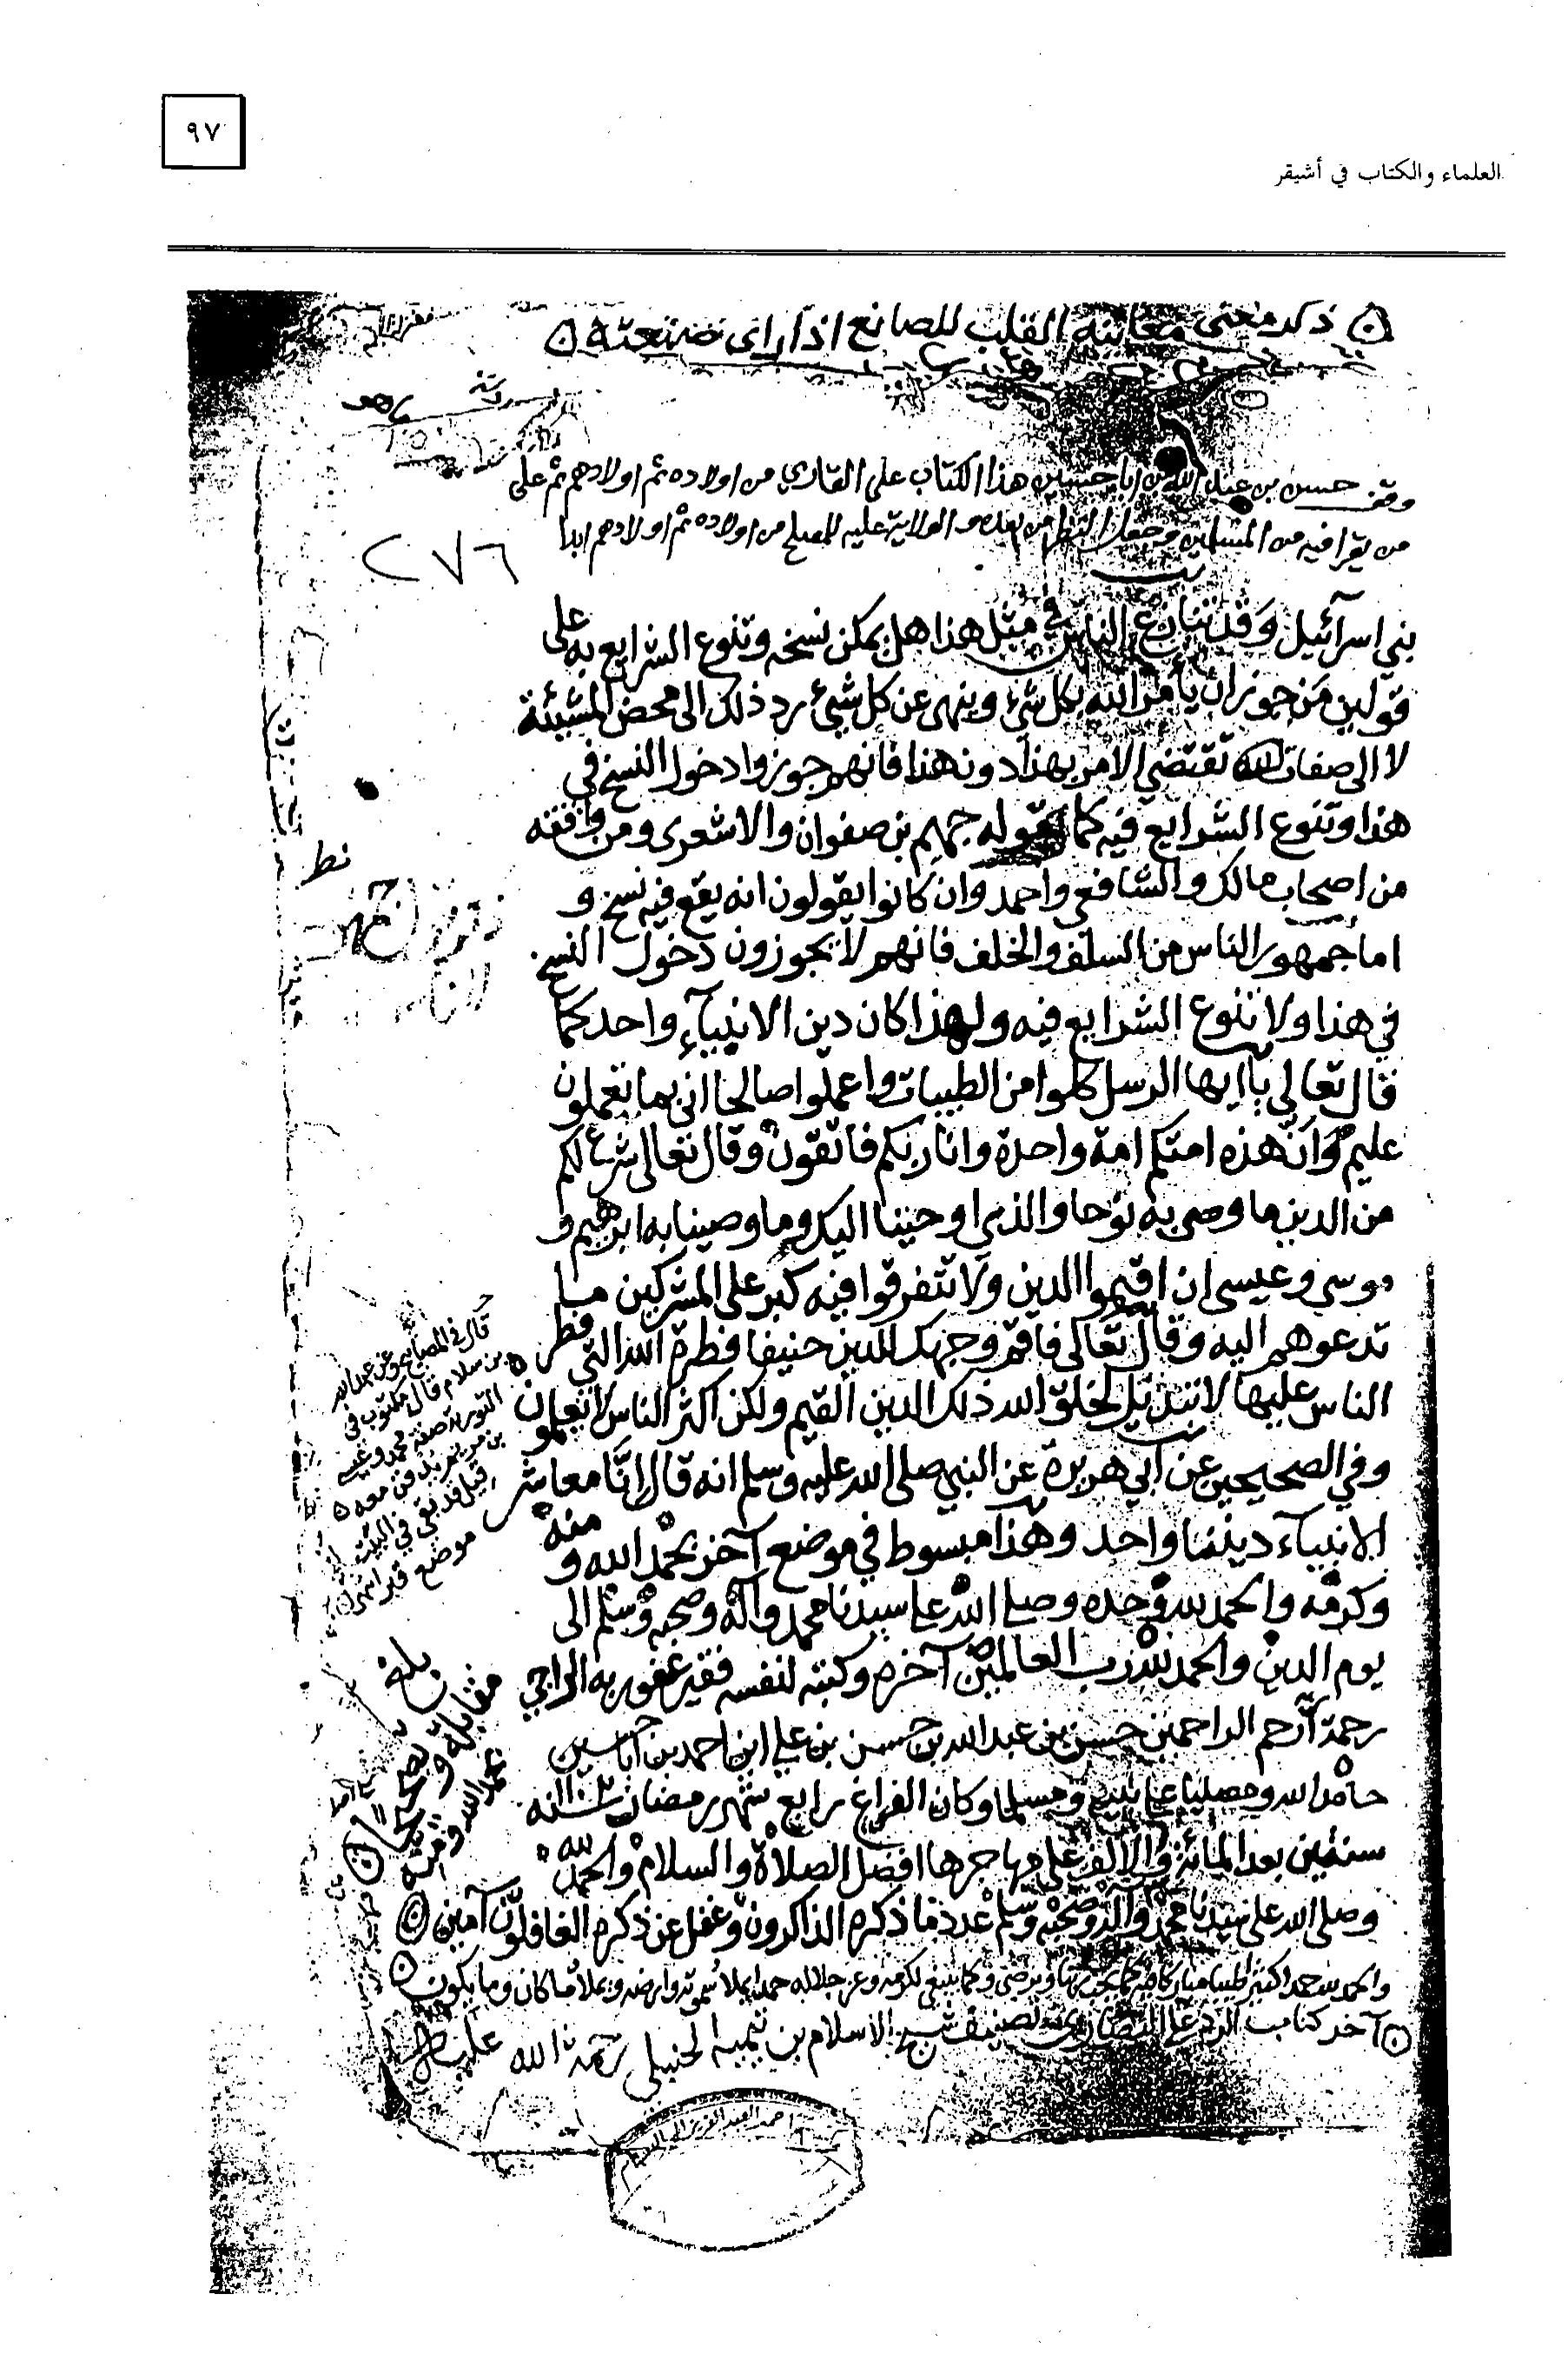 ٩٧
العلماء والكتاب في أشيقر
ذكر معنى معاينة القلب للصانع اذا راى صنعته
وقف حسن بن عبد الله بن ابا حسين هذا الكتاب على القاري من اولاده ثم اولادهم ثم على
من يقرا فيه من المسلمين وجعل النظر من بعده والولاية عليه للصلح من اولاده ثم اولادهم ابدا
٢٧٦
بني اسرآئيل وقد تنازع الناس في مثل هذا هل يمكن نسخه وتنوع الشرايع به على
قولين من جوز ان يأمر الله بكل شيء وينهى عن كل شيء رد ذلك الى محض المشيئة
لا الى صفات الله تقتضي الامر بهذا دون هذا فانهم جوزوا دخول النسخ في
هذا وتنوع الشرايع فيه كما يقوله جهم بن صفوان والاشعرى ومن وافقه
من اصحاب مالك والشافعي واحمد وان كانوا يقولون انه يقع فيه نسخ و
اما جمهور الناس من السلف والخلف فانهم لا يجوزون دخول النسخ
في هذا ولا تنوع الشرايع فيه ولهذا كان دين الانبيآء واحد كما
قال تعالى ياايها الرسل كلوا من الطيبات واعملوا صالحا اني بما تعملون
عليم وان هذه امتكم امة واحدة وانا ربكم فاتقون وقال تعالى شرع لكم
من الدين ما وصى به نوحا والذي اوحينا اليك وما وصينا به ابرهيم و
موسى وعيسى ان اقيموا الدين ولا تتفرقوا فيه كبر على المشركين ما
تدعوهم اليه وقال تعالى فاقم وجهك للدين حنيفا فطرة الله التي فطر
الناس عليها لا تبديل لخلق الله ذلك الدين القيم ولكن اكثر الناس لا يعلمون
وفي الصحيحين عن ابي هريرة عن النبي صلى الله عليه وسلم انه قال إنا معاشر
الانبيآء ديننا واحد وهذا مبسوط في موضع آخر بحمد الله ومنه
وكرمه والحمد لله وحده وصلى الله على سيدنا محمد وآله وصحبه وسلم الى
يوم الدين والحمد لله رب العالمين آخره وكتبه لنفسه فقير عفو ربه الراجي
رحمة أرحم الراحمين حسن بن عبد الله بن حسن بن علي ابن احمد بن اباحسين
حامدا لله ومصليا على نبيه ومسلما وكان الفراغ رابع شهر رمضان
سنتين بعد المائة والالف على مهاجرها افضل الصلاة والسلام والحمد لله
وصلى الله على سيدنا محمد وآله وصحبه وسلم عدد ما ذكره الذاكرون وغفل عن ذكره الغافلون آمين
والحمد لله حمدا كثيرا طيبا مباركا فيه كما يحب ربنا ويرضى وكما ينبغي لكرمه وعز جلاله حمدا يملأ سمواته وارضه ويملأ ما كان وما يكون
آخر كتاب الرد على النصارى تصنيف شيخ الاسلام بن تيميه الحنبلي رحمة الله عليه
قال في المصابيح وعن عبد الله
بن سلام قال مكتوب في
التورية صفة محمد وعيسى
بن مريم يدفن معه
قيل قد بقي في البيت
موضع قبر
بلغ
مقابلة وتصحيحا
بحمد الله ومنه